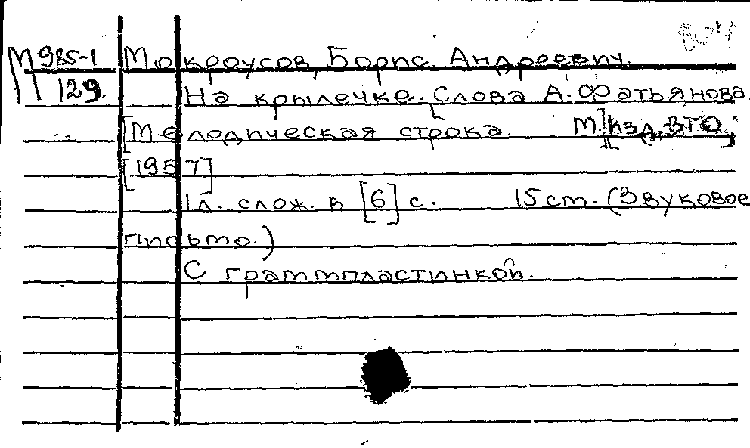 М 985-1 Мокроусов, Борис Андреевич.
129. На крылечке. Слова А. Фатьянова.
[Мелодическая строка. М.][Изд. ВТО,
[1957]
1 л. слож. в [6] с. 15 см. (Звуковое
письмо.)
С грампластинкой.